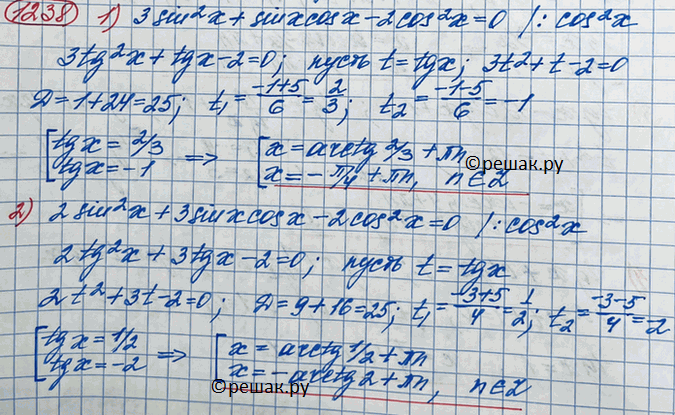 1238 1) 3sin²x + sinxcosx - 2cos²x = 0 /: cos²x
3tg²x + tgx - 2 = 0; пусть t = tgx; 3t² + t - 2 = 0
Д = 1 + 24 = 25; t₁ = (-1+5)/6 = 2/3; t₂ = (-1-5)/6 = -1
[ tgx = 2/3 => [ x = arctg 2/3 + πn
tgx = -1 x = -π/4 + πn, n∈Z
©решак.ру
2) 2sin²x + 3sinxcosx - 2cos²x = 0 /: cos²x
2tg²x + 3tgx - 2 = 0; пусть t = tgx
2t² + 3t - 2 = 0; Д = 9 + 16 = 25; t₁ = (-3+5)/4 = 1/2; t₂ = (-3-5)/4 = -2
[ tgx = 1/2 => [ x = arctg 1/2 + πn
tgx = -2 x = -arctg 2 + πn, n∈Z
©решак.ру